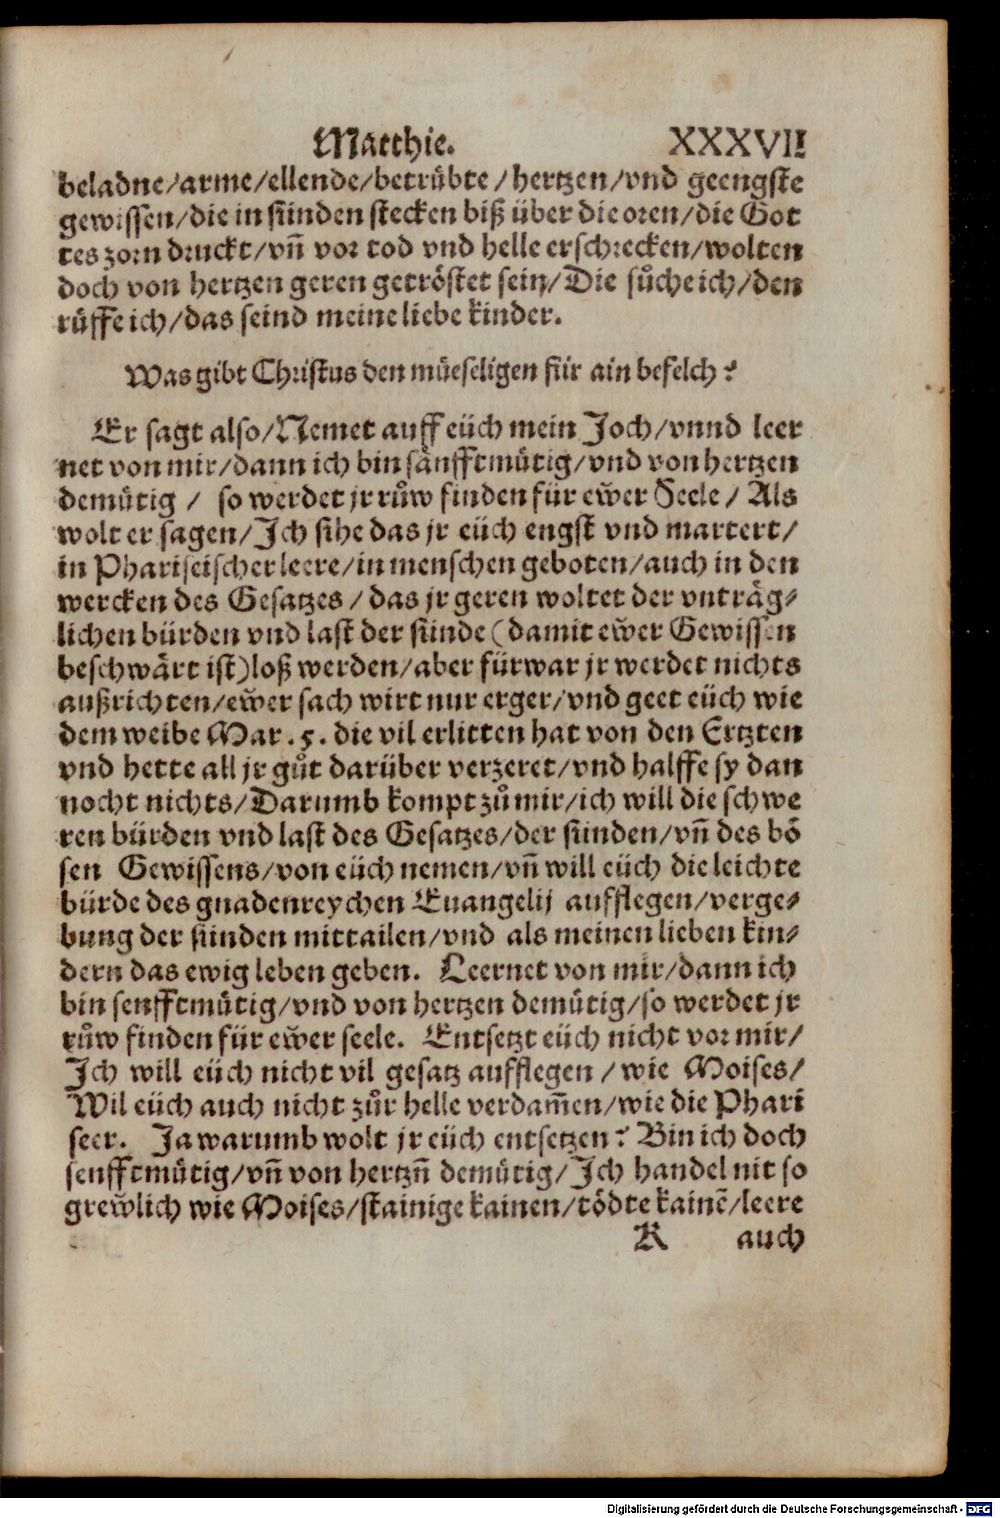 Matthie. XXXVII
beladne/arme/ellende/betrübte/hertzen/vnd geengste
gewissen/die in sünden stecken biß über die oren/die Got
tes zorn druckt/vñ vor tod vnd helle erschrecken/wolten
doch von hertzen geren getröstet sein/Die sůche ich/den
růffe ich/das seind meine liebe kinder.
Was gibt Christus den müeseligen für ain befelch?
Er sagt also/Nemet auff eüch mein Joch/vnnd leer
net von mir/dann ich bin sänfftmütig/vnd von hertzen
demütig / so werdet jr růw finden für ewer Seele/ Als
wolt er sagen/Ich sihe das jr eüch engst vnd martert/
in Phariseischer leere/in menschen geboten/auch in den
wercken des Gesatzes / das jr geren woltet der vnträg⸗
lichen bürden vnd last der sünde (damit ewer Gewissen
beschwärt ist) loß werden/aber fürwar jr werdet nichts
außrichten/ewer sach wirt nur erger/vnd geet eüch wie
dem weibe Mar. 5. die vil erlitten hat von den Ertzten
vnd hette all jr gůt darüber verzeret/vnd halffe sy dan
nocht nichts/Darumb kompt zů mir/ich will die schwe
ren bürden vnd last des Gesatzes/der sünden/vñ des bö
sen Gewissens/von eüch nemen/vñ will eüch die leichte
bürde des gnadenreychen Euangelij aufflegen/verge⸗
bung der sünden mittailen/vnd als meinen lieben kin⸗
dern das ewig leben geben. Leernet von mir/dann ich
bin senfftmütig/vnd von hertzen demütig/so werdet jr
růw finden für ewer seele. Entsetzt eüch nicht vor mir/
Ich will eüch nicht vil gesatz aufflegen / wie Moises/
Wil eüch auch nicht zůr helle verdam̃en/wie die Phari
seer. Ja warumb wolt jr eüch entsetzen? Bin ich doch
senfftmütig/vñ von hertzñ demütig/Ich handel nit so
grewlich wie Moises/stainige kainen/tödte kainẽ/leere
K auch
Digitalisierung gefördert durch die Deutsche Forschungsgemeinschaft - DFG